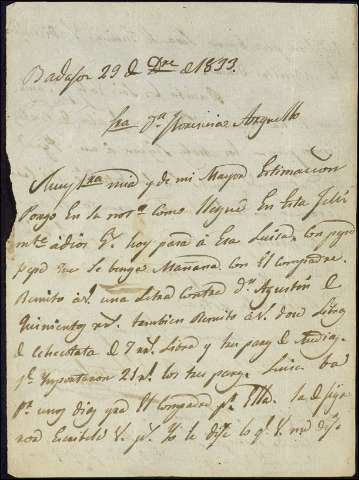 Badajoz 29 de Dre de 1833.
Sra Da Florencia Arguello
Muy Sra mia y de mi Mayor Estimacion
Pongo En su nota como llegue En Esta feliz
mte á dios gs. hoy para á Esa Luisa
que Se benga Mañana con El Compadre.
Remito á V. una Letra Contra Dn Agustin de
Quinientos rs. tambien Remito á V. doce Libras
de Chocolate de 7 rs. Libra y tres pares de Medias
qe Importaron 21 rs. los tres pares. Luisa
pr unos dias yra El Compadre pr Ella.
Escribele V. pr Yo le dije lo qe V. me dijo